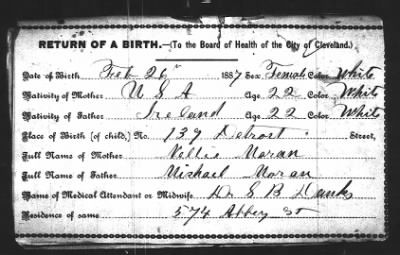 RETURN OF A BIRTH.—(To the Board of Health of the City of Cleveland.)
Date of Birth Feb 26" 1887 Sex Female Color White
Nativity of Mother U S A Age 22 Color White
Nativity of Father Ireland Age 22 Color White
Place of Birth (of child,) No. 139 Detroit Street,
Full Name of Mother Nellie Moran
Full Name of Father Michael Moran
Name of Medical Attendant or Midwife Dr S B
Residence of same 574 Abbey St